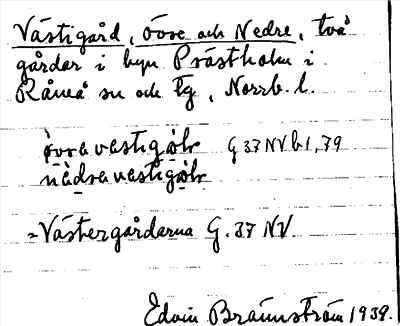 Västigård, övre och Nedre, två
gårdar i byn Prästholm i
Råneå sn och tg, Norrb. l.
övra västigåln G 37 NV b 1, 79
nädra västigåln
= Västergårdarna G. 37 NV.
Edvin Brännström 1939.